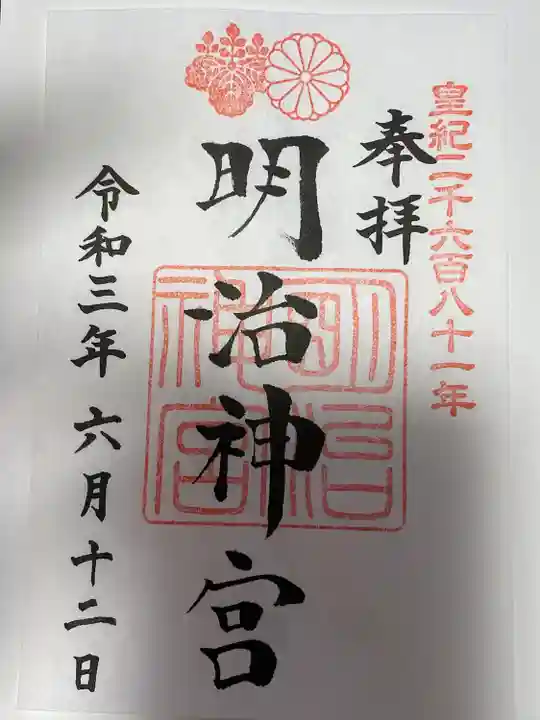 皇紀二千六百八十一年
奉拝
明治神宮
明治神宮
令和三年六月十二日